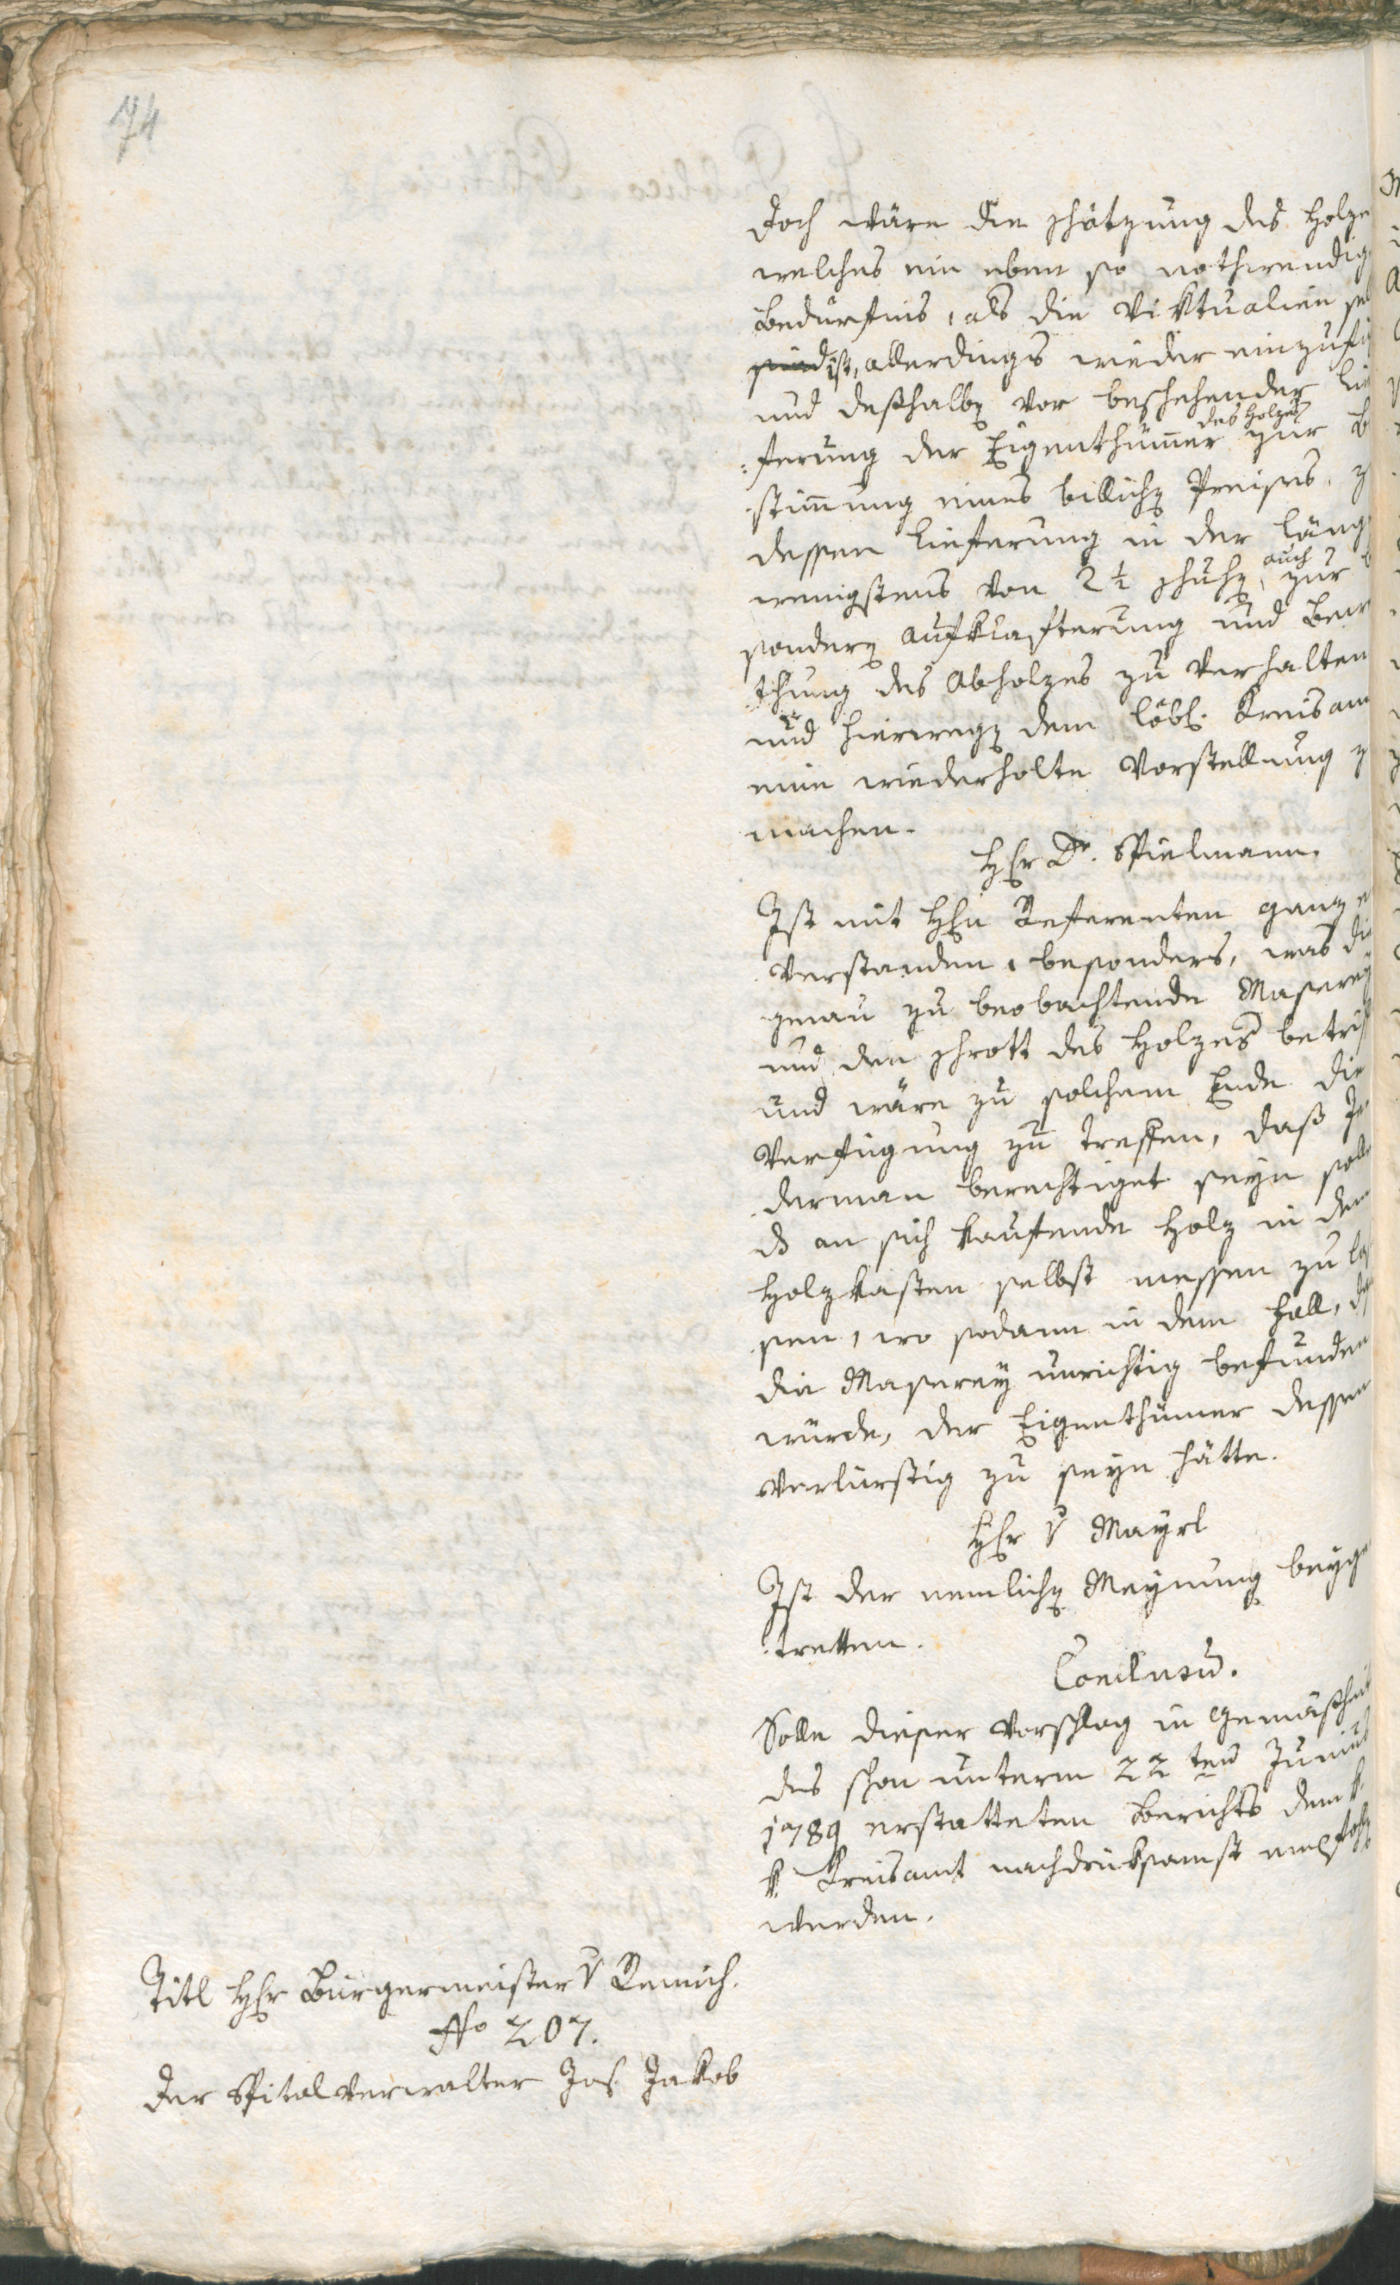 74
doch wäre die schätzung des Holze
welches ein eben so nothwendig
Bedürfnis, als die Viktualien se
sind ist, allerdings wieder einzufü
und deßhalb vor beschehender Lie
ferung der Eigenthümer des Holzes zur B
stimmung eines billichen Preises, z
dessen Lieferung in der Läng
wenigstens von 2 ½ schuhen, auch zur b
sondern Aufklafterung und Bewe
thung des Abholzes zu verhalten
und hierwegen dem löbl. Kreisam
eine wiederholte Vorstellung z
machen.
HEr Dr. Spielmann.
Ist mit HEn Referenten ganz e
verstanden, besonders, was die
genau zu beobachtende Maserey
und den schrott des Holzes betrif
und wäre zu solchem Ende die
Verfügung zu treffen, daß Je
derman berechtiget seyn solle
ds an sich kaufende Holz in dem
Holzkasten selbst messen zu las
sen, wo sodann in dem Fall, ds
die Maserey unrichtig befunden
würde, der Eigenthümer dessen
verlurstig zu seyn hätte.
HEr v Mayrl
Ist der nemlichen Meynung beyge
tretten.
Conclusum.
Solle dieser Vorschlag in Gemäßheit
des schon unterm 22ten Junius
1789 erstatteten Berichts dem k.
k Kreisamt nachdruksamst empfohlen
werden.
Titl HEr Bürgermeister v Remich.
No 207.
Der Spitalverwalter Jos. Jakob